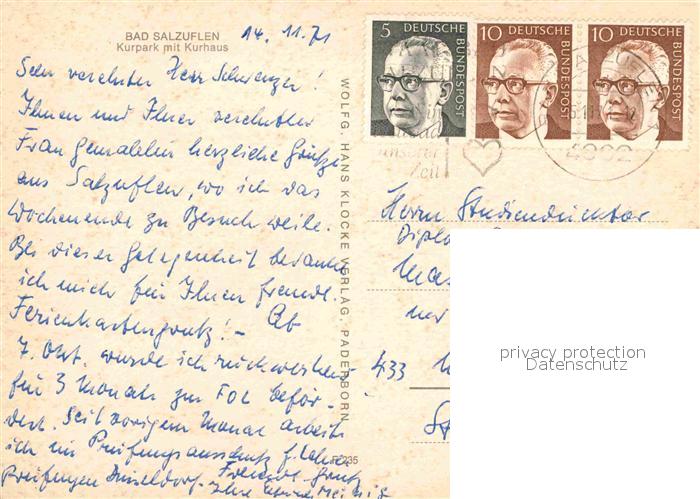 BAD SALZUFLEN
Kurpark mit Kurhaus
14.11.71
Sehr verehrter Herr Schwenger!
Ihnen und Ihrer verehrten
Frau Gemahlin herzliche Grüße
aus Salzuflen, wo ich das
Wochenende zu Besuch weile.
Bei dieser Gelegenheit bedanke
ich mich für Ihren freundl.
Ferienkartengruß! - Ab
7. Okt. wurde ich rückwirkend
für 3 Monate zur FOL beför-
dert. Seit vorigem Monat arbeite
ich im Prüfungsausschuß f. Lehrer
Prüfungen Düsseldorf. Freundl. Gruß
Ihre
WOLFG. HANS KLOCKE VERLAG, PADERBORN
235
5 DEUTSCHE BUNDESPOST
10 DEUTSCHE BUNDESPOST
10 DEUTSCHE BUNDESPOST
unserer
Zeit
4902
Herrn Studiendirektor
Dipl
433
privacy protection
Datenschutz